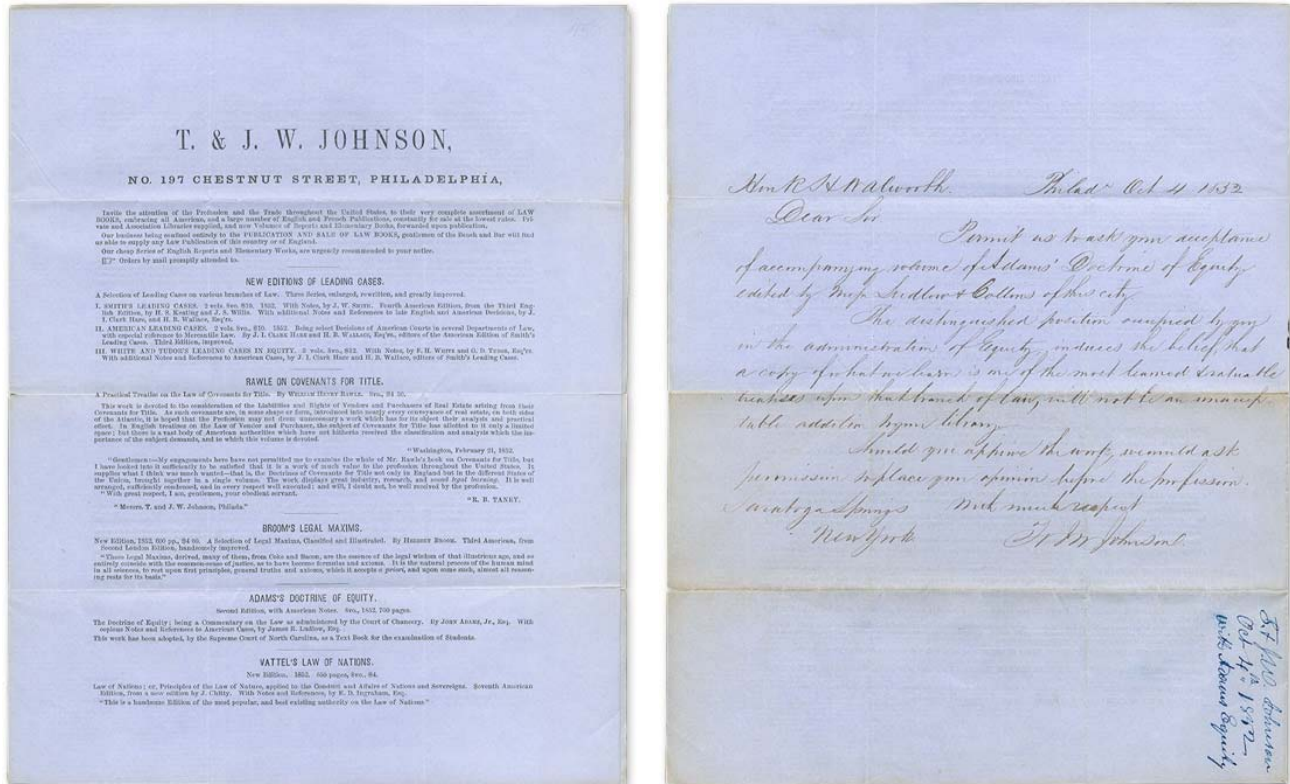 T. & J. W. JOHNSON,
NO. 197 CHESTNUT STREET, PHILADELPHIA,
Invite the attention of the Profession and the Trade throughout the United States, to their very complete assortment of LAW
BOOKS, embracing all American, and a large number of English and French Publications, constantly for sale at the lowest rates. Pri-
vate and Association Libraries supplied, and new Volumes of Reports and Elementary Books, forwarded upon publication.
Our business being confined entirely to the PUBLICATION AND SALE OF LAW BOOKS, gentlemen of the Bench and Bar will find
us able to supply any Law Publication of this country or of England.
Our cheap Series of English Reports and Elementary Works, are urgently recommended to your notice.
Orders by mail promptly attended to.
NEW EDITIONS OF LEADING CASES.
A Selection of Leading Cases on various branches of Law. Three Series, enlarged, rewritten, and greatly improved.
I. SMITH'S LEADING CASES. 2 vols. 8vo. $10. 1852. With Notes, by J. W. SMITH. Fourth American Edition, from the Third Eng-
lish Edition, by H. S. Keating and J. S. Willis. With additional Notes and References to late English and American Decisions, by J.
I. Clark Hare, and H. B. Wallace, Esq'rs.
II. AMERICAN LEADING CASES. 2 vols. 8vo., $10. 1852. Being select Decisions of American Courts in several Departments of Law,
with especial reference to Mercantile Law. By J. I. CLARK HARE and H. B. WALLACE, Esq'rs., editors of the American Edition of Smith's
Leading Cases. Third Edition, improved.
III. WHITE AND TUDOR'S LEADING CASES IN EQUITY. 8vo., With Notes, by F. H. WHITE and O. D. TUDOR, Esq'rs.
With additional Notes and References to American Cases, by J. I. Clark Hare and H. B. Wallace, editors of Smith's Leading Cases.
RAWLE ON COVENANTS FOR TITLE.
A Practical Treatise on the Law of Covenants for Title. By WILLIAM HENRY RAWLE. 8vo.,
This work is devoted to the consideration of the Liabilities and Rights of Vendors and Purchasers of Real Estate arising from their
Covenants for Title. As such covenants are, in some shape or form, introduced into nearly every conveyance of real estate, on both sides
of the Atlantic, it is hoped that the Profession may not deem unnecessary a work which has for its object their analysis and practical
effect. In English treatises on the Law of Vendor and Purchaser, the subject of Covenants for Title has allotted to it only a limited
space; but there is a vast body of American authorities which have not hitherto received the classification and analysis which the im-
portance of the subject demands, and to which this volume is devoted.
"Washington, February 21, 1852.
"Gentlemen:—My engagements here have not permitted me to examine the whole of Mr. Rawle's book on Covenants for Title, but
I have looked into it sufficiently to be satisfied that it is a work of much value to the profession throughout the United States. It
supplies what I think was much wanted—that is, the Doctrines of Covenants for Title not only in England but in the different States of
the Union, brought together in a single volume. The work displays great industry, research, and sound legal learning. It is well
arranged, sufficiently condensed, and in every respect well executed; and will, I doubt not, be well received by the profession.
"With great respect, I am, gentlemen, your obedient servant.
"R. B. TANEY.
"Messrs. T. and J. W. Johnson, Philada."
BROOM'S LEGAL MAXIMS.
New Edition, 1852, 600 pp., A Selection of Legal Maxims, Classified and Illustrated. By HERBERT BROOM. Third American, from
Second London Edition, handsomely improved.
"These Legal Maxims, derived, many of them, from Coke and Bacon, are the essence of the legal wisdom of that illustrious age, and so
entirely coincide with the common-sense of justice, as to have become formulas and axioms. It is the natural process of the human mind
in all sciences, to rest upon first principles, general truths and axioms, which it accepts a priori, and upon some such, almost all reason-
ing rests for its basis."
ADAMS'S DOCTRINE OF EQUITY.
Second Edition, with American Notes. 8vo., 1852, 700 pages.
The Doctrine of Equity; being a Commentary on the Law as administered by the Court of Chancery. By JOHN ADAMS, Jr., Esq. With
copious Notes and References to American Cases, by James R. Ludlow, Esq.
This work has been adopted, by the Supreme Court of North Carolina, as a Text Book for the examination of Students.
VATTEL'S LAW OF NATIONS.
New Edition. 1852. pages, 8vo., $4.
Law of Nations; or, Principles of the Law of Nature, applied to the Conduct and Affairs of Nations and Sovereigns. Seventh American
Edition, from a new edition by J. Chitty. With Notes and References, by E. D. Ingraham, Esq.
"This is a handsome Edition of the most popular, and best existing authority on the Law of Nations"
Hon R H Walworth. Philada Oct 4 1852
Dear Sir
Permit us to ask your acceptance
of accompanying volume of Adams' Doctrine of Equity
edited by Mess Ludlow & Collins of this city
The distinguished position occupied by you
in the administration of Equity, induces the belief, that
a copy of what we learn is one of the most learned & valuable
treatises upon that branch of law, will not be an unaccep
table addition to your library
Should you approve the work, we would ask
permission to place your opinion before the profession.
Saratoga Springs With much respect
New York T & J W Johnson
T & J. W. Johnson
Oct 4th 1852
with Adams Equity